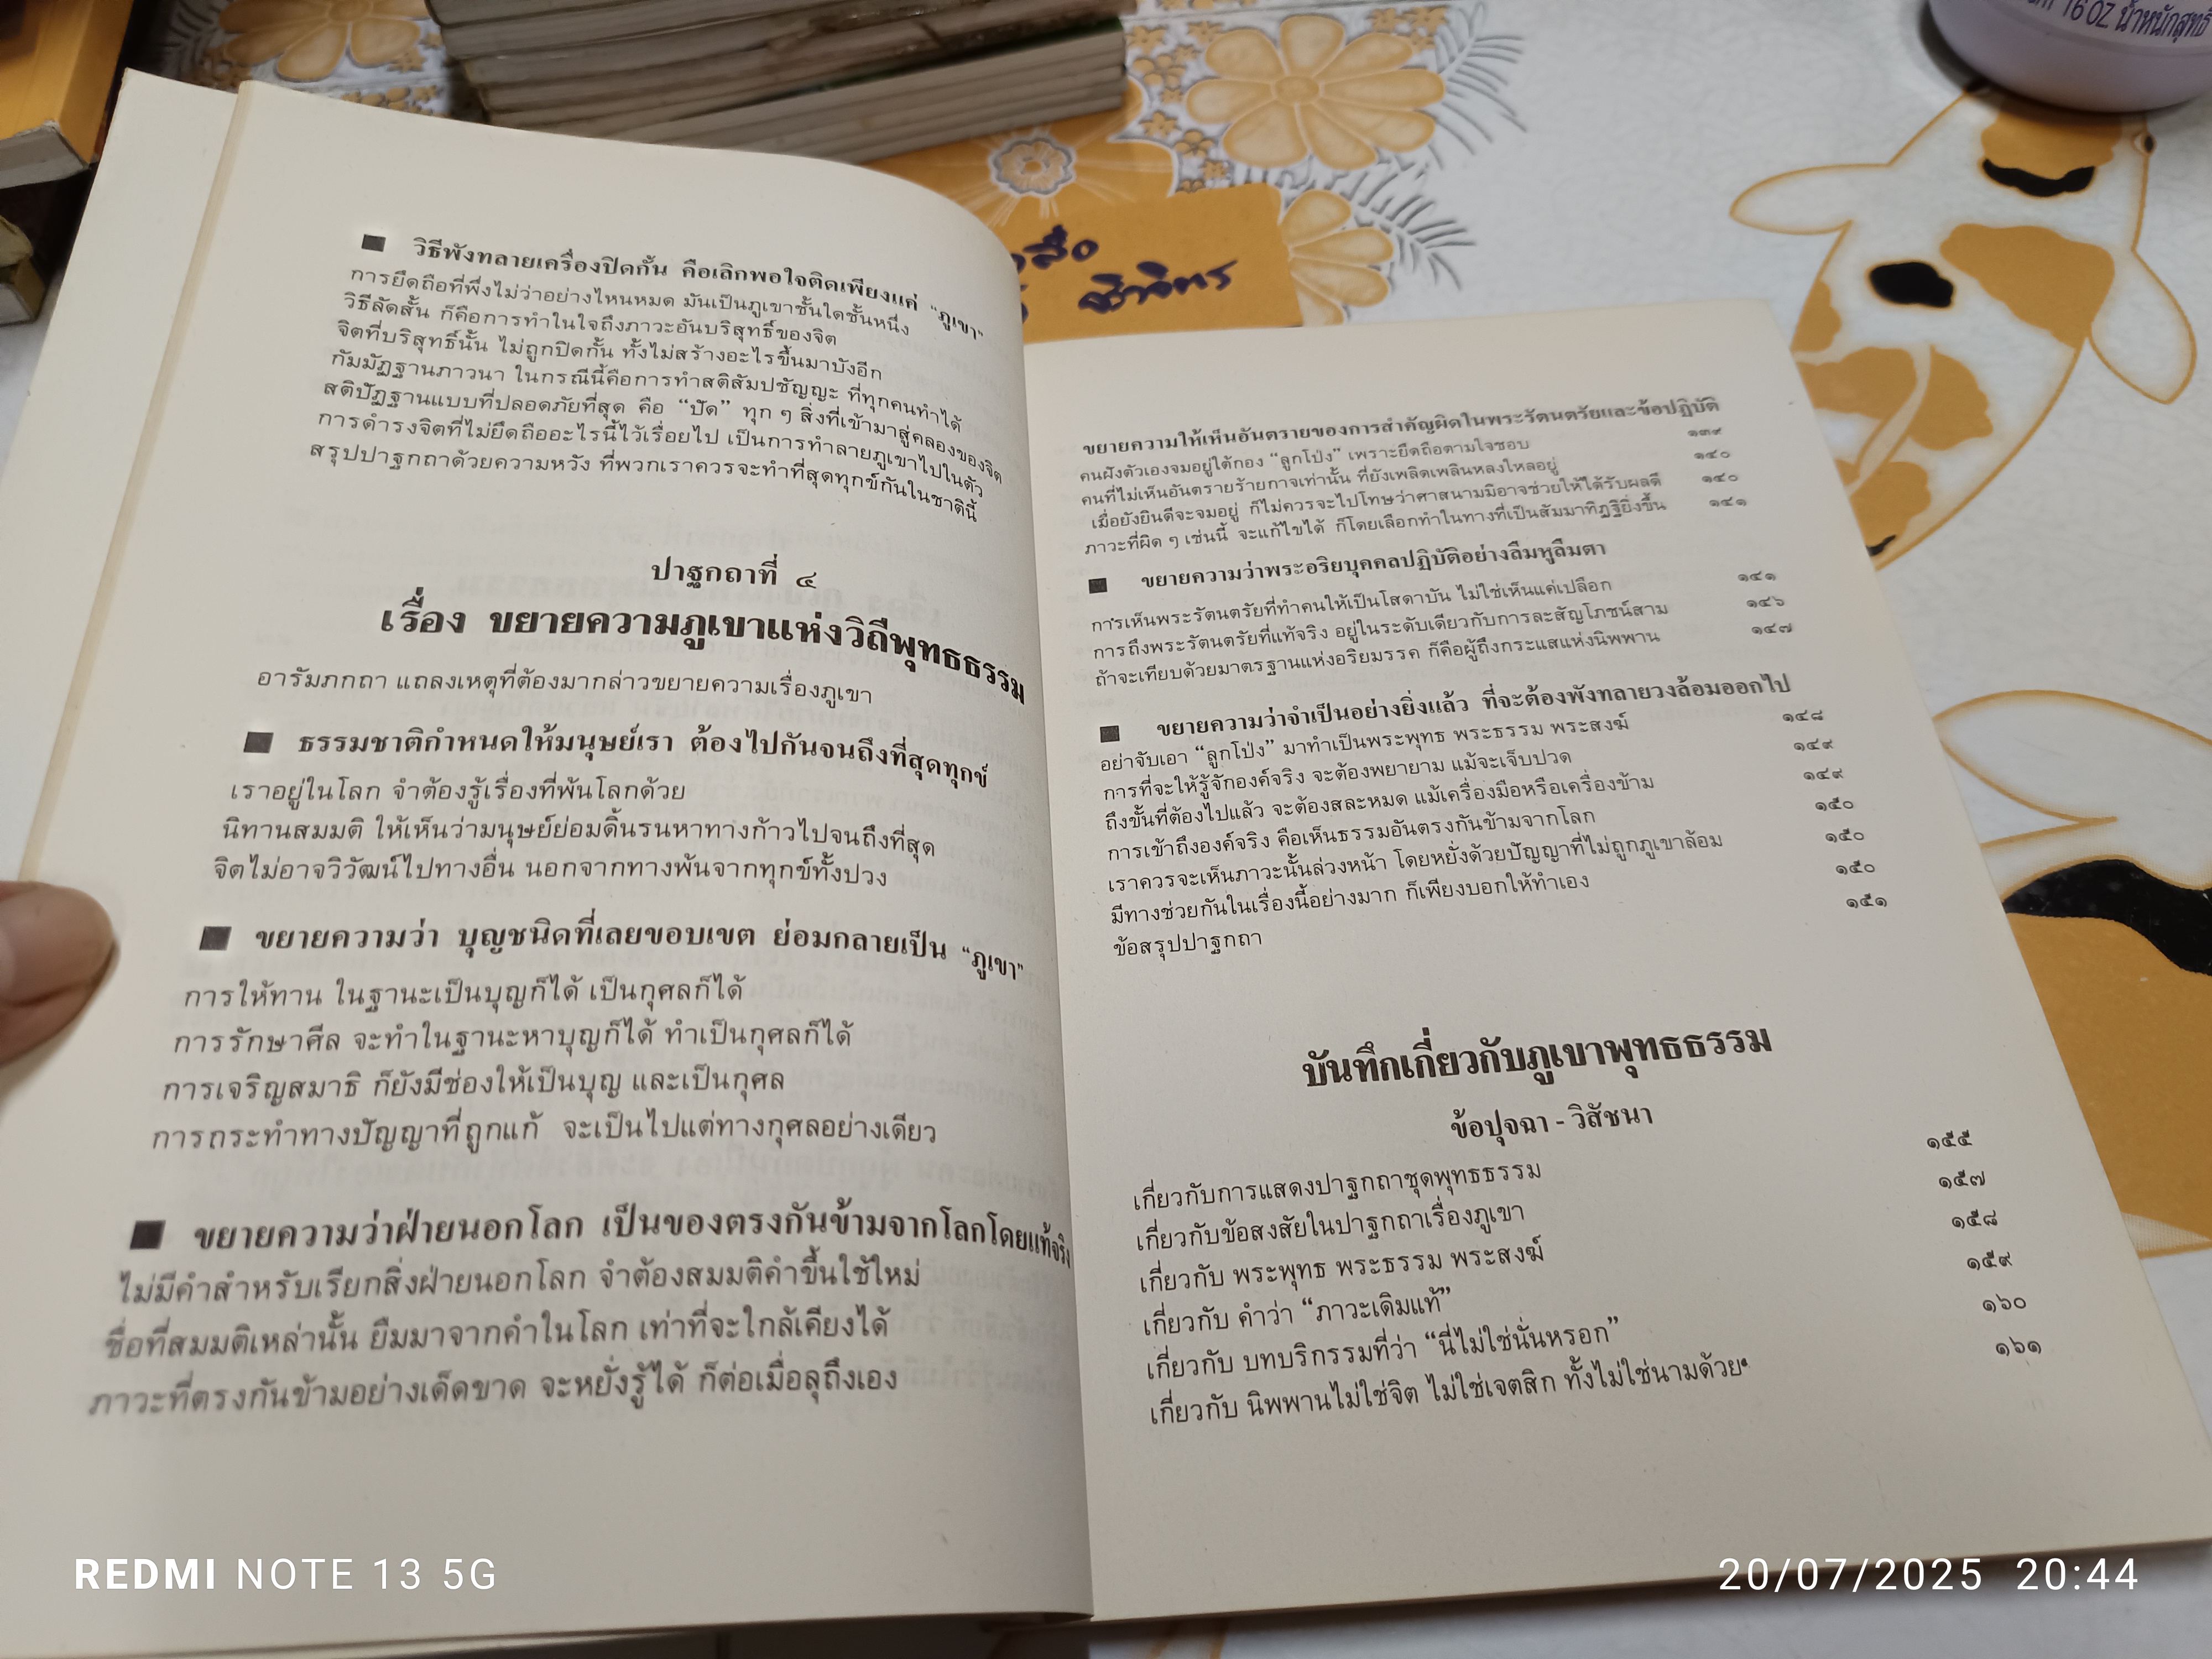 16 OZ น้ำหนักสุทธิ
■ วิธีพังทลายเครื่องปิดกั้น คือเลิกพอใจติดเพียงแค่ "ภูเขา"
การยึดถือที่พึ่งไม่ว่าอย่างไหนหมด มันเป็นภูเขาชั้นใดชั้นหนึ่ง
วิธีลัดสั้น ก็คือการทำในใจถึงภาวะอันบริสุทธิ์ของจิต
จิตที่บริสุทธิ์นั้น ไม่ถูกปิดกั้น ทั้งไม่สร้างอะไรขึ้นมาบังอีก
กัมมัฏฐานภาวนา ในกรณีนี้คือการทำสติสัมปชัญญะ ที่ทุกคนทำได้
สติปัฏฐานแบบที่ปลอดภัยที่สุด คือ “ปัด” ทุก ๆ สิ่งที่เข้ามาสู่คลองของจิต
การดำรงจิตที่ไม่ยึดถืออะไรนี้ไว้เรื่อยไป เป็นการทำลายภูเขาไปในตัว
สรุปปาฐกถาด้วยความหวัง ที่พวกเราควรจะทำที่สุดทุกข์กันในชาตินี้
ปาฐกถาที่ ๔
เรื่อง ขยายความภูเขาแห่งวิถีพุทธธรรม
อารัมภกถา แถลงเหตุที่ต้องมากล่าวขยายความเรื่องภูเขา
■ ธรรมชาติกำหนดให้มนุษย์เรา ต้องไปกันจนถึงที่สุดทุกข์
เราอยู่ในโลก จำต้องรู้เรื่องที่พ้นโลกด้วย
นิทานสมมติ ให้เห็นว่ามนุษย์ย่อมดิ้นรนหาทางก้าวไปจนถึงที่สุด
จิตไม่อาจวิวัฒน์ไปทางอื่น นอกจากทางพ้นจากทุกข์ทั้งปวง
■ ขยายความว่า บุญชนิดที่เลยขอบเขต ย่อมกลายเป็น “ภูเขา”
การให้ทาน ในฐานะเป็นบุญก็ได้ เป็นกุศลก็ได้
การรักษาศีล จะทำในฐานะหาบุญก็ได้ ทำเป็นกุศลก็ได้
การเจริญสมาธิ ก็ยังมีช่องให้เป็นบุญ และเป็นกุศล
การกระทำทางปัญญาที่ถูกแก้ จะเป็นไปแต่ทางกุศลอย่างเดียว
■ ขยายความว่าฝ่ายนอกโลก เป็นของตรงกันข้ามจากโลกโดยแท้จริง
ไม่มีคำสำหรับเรียกสิ่งฝ่ายนอกโลก จำต้องสมมติคำขึ้นใช้ใหม่
ชื่อที่สมมติเหล่านั้น ยืมมาจากคำในโลก เท่าที่จะใกล้เคียงได้
ภาวะที่ตรงกันข้ามอย่างเด็ดขาด จะหยั่งรู้ได้ ก็ต่อเมื่อลุถึงเอง
ขยายความให้เห็นอันตรายของการสำคัญผิดในพระรัตนตรัยและข้อปฏิบัติ
คนฝังตัวเองจมอยู่ใต้กอง “ลูกโป่ง” เพราะยึดถือตามใจชอบ ๑๓๙
คนที่ไม่เห็นอันตรายร้ายกาจเท่านั้น ที่ยังเพลิดเพลินหลงใหลอยู่ ๑๔๐
เมื่อยังยินดีจะจมอยู่ ก็ไม่ควรจะไปโทษว่าศาสนามมิอาจช่วยให้ได้รับผลดี ๑๔๐
ภาวะที่ผิด ๆ เช่นนี้ จะแก้ไขได้ ก็โดยเลือกทำในทางที่เป็นสัมมาทิฏฐิยิ่งขึ้น ๑๔๑
■ ขยายความว่าพระอริยบุคคลปฏิบัติอย่างลืมหูลืมตา
การเห็นพระรัตนตรัยที่ทำคนให้เป็นโสดาบัน ไม่ใช่เห็นแค่เปลือก ๑๔๑
การถึงพระรัตนตรัยที่แท้จริง อยู่ในระดับเดียวกับการละสัญโภชน์สาม ๑๔๖
ถ้าจะเทียบด้วยมาตรฐานแห่งอริยมรรค ก็คือผู้ถึงกระแสแห่งนิพพาน ๑๔๗
■ ขยายความว่าจำเป็นอย่างยิ่งแล้ว ที่จะต้องพังทลายวงล้อมออกไป
อย่าจับเอา “ลูกโป่ง” มาทำเป็นพระพุทธ พระธรรม พระสงฆ์ ๑๔๘
การที่จะให้รู้จักองค์จริง จะต้องพยายาม แม้จะเจ็บปวด ๑๔๙
ถึงขั้นที่ต้องไปแล้ว จะต้องสละหมด แม้เครื่องมือหรือเครื่องข้าม ๑๔๙
การเข้าถึงองค์จริง คือเห็นธรรมอันตรงกันข้ามจากโลก ๑๕๐
เราควรจะเห็นภาวะนั้นล่วงหน้า โดยหยั่งด้วยปัญญาที่ไม่ถูกภูเขาล้อม ๑๕๐
มีทางช่วยกันในเรื่องนี้อย่างมาก ก็เพียงบอกให้ทำเอง ๑๕๐
ข้อสรุปปาฐกถา ๑๕๑
บันทึกเกี่ยวกับภูเขาพุทธธรรม
ข้อปุจฉา - วิสัชนา
เกี่ยวกับการแสดงปาฐกถาชุดพุทธธรรม ๑๕๕
เกี่ยวกับข้อสงสัยในปาฐกถาเรื่องภูเขา ๑๕๗
เกี่ยวกับ พระพุทธ พระธรรม พระสงฆ์ ๑๕๘
เกี่ยวกับ คำว่า “ภาวะเดิมแท้” ๑๕๙
เกี่ยวกับ บทบริกรรมที่ว่า “นี่ไม่ใช่นั่นหรอก” ๑๖๐
เกี่ยวกับ นิพพานไม่ใช่จิต ไม่ใช่เจตสิก ทั้งไม่ใช่นามด้วย ๑๖๑
REDMI NOTE 13 5G
20/07/2025 20:44